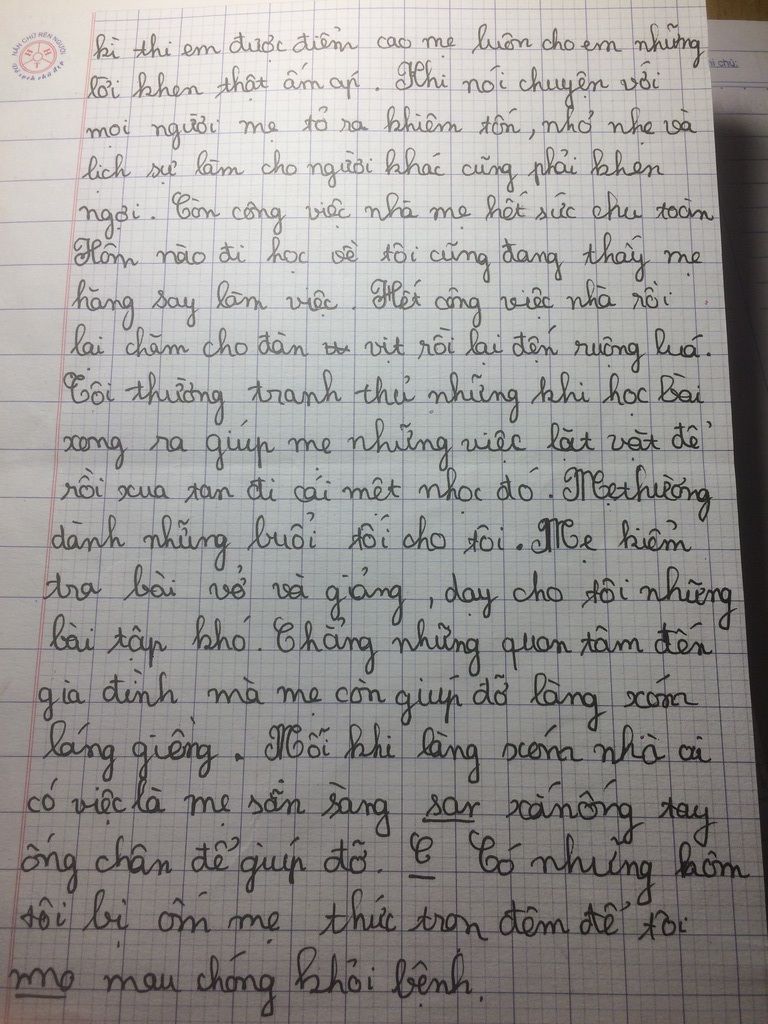 NẮN CHỮ RÈN NGƯỜI
kì thi em được điểm cao mẹ luôn cho em những
lời khen thật ấm áp. Khi nói chuyện với
mọi người mẹ tỏ ra khiêm tốn, nhỏ nhẹ và
lịch sự làm cho người khác cũng phải khen
ngợi. Còn công việc nhà mẹ hết sức chu toàn
Hôm nào đi học về tôi cũng đang thấy mẹ
hăng say làm việc. Hết công việc nhà rồi
lại chăm cho đàn vịt rồi lại đến ruộng luá.
Tôi thường tranh thủ những khi học bài
xong ra giúp mẹ những việc lặt vặt để
rồi xua tan đi cái mệt nhọc đó. Mẹ thường
dành những buổi tối cho tôi. Mẹ kiểm
tra bài vở và giảng, dạy cho tôi những
bài tập khó. Chẳng những quan tâm đến
gia đình mà mẹ còn giúp đỡ làng xóm
láng giềng. Mỗi khi làng xóm nhà ai
có việc là mẹ sẵn sàng sar xắn ống tay
ống chân để giúp đỡ. C Có những hôm
tôi bị ốm mẹ thức trọn đêm để tôi
mno mau chóng khỏi bệnh.